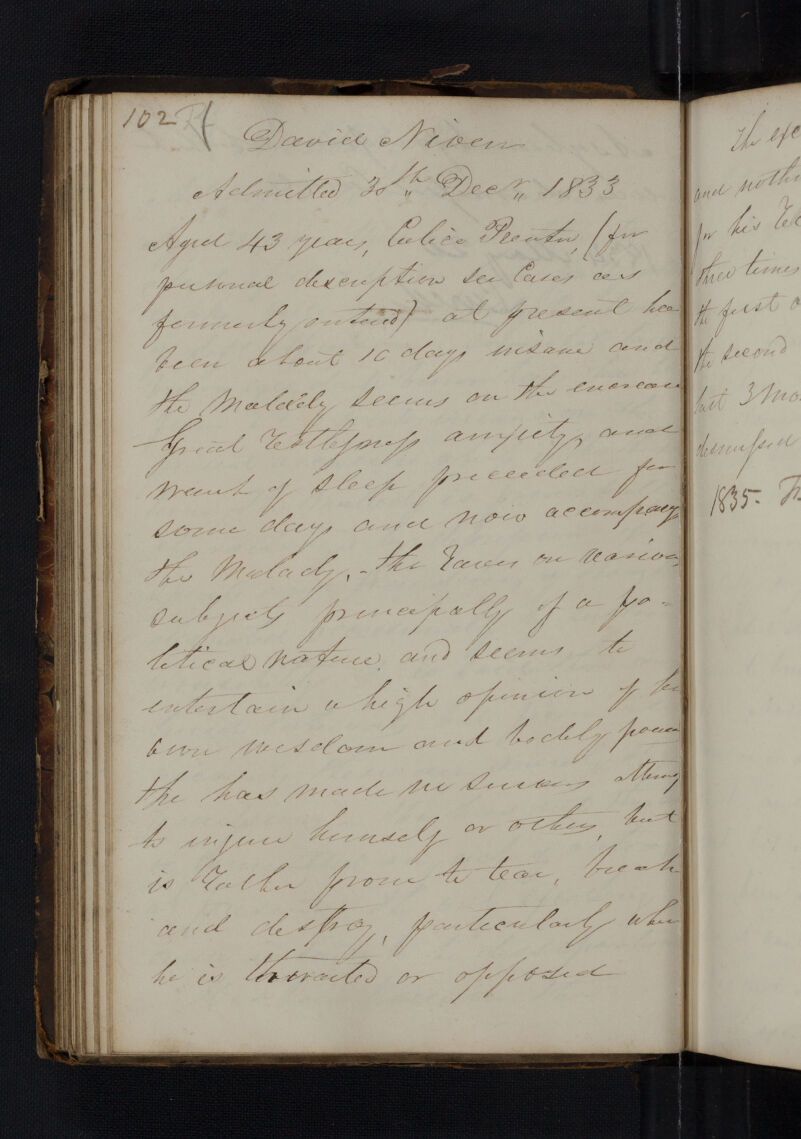 102
David Niven
Admitted 30th Decr 1833
Aged 43 years, Calico Printer, (for
personal description see Cases as
formerly entered) at present has
been about 10 days insane and
the Malady seems on the increase
Great restlessness anxiety, and
want of sleep preceeded for
some days and now accompany
the Malady, - he raves on various
subjects principally of a po-
litical nature and seems to
entertain a high opinion of his
own wisdom and bodily power
he has made no serious attempt
to injure himself or others, but
is rather prone to tear, break
and destroy, particularly when
he is thwarted or opposed
The
and
for his
three times
the first
the second
last 3
dismissed
1835.